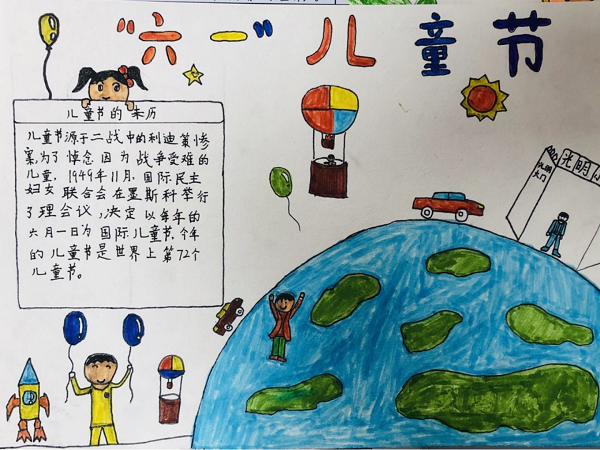 "六一"儿童节
儿童节的来历
儿童节源于二战中的利迪策惨
案,为了悼念因为战争受难的
儿童,1949年11月,国际民主
妇女联合会在墨斯科举行
了理会议,决定以每年的
六月一日为国际儿童节,今年
的儿童节是世界上第72个
儿童节。
光明小